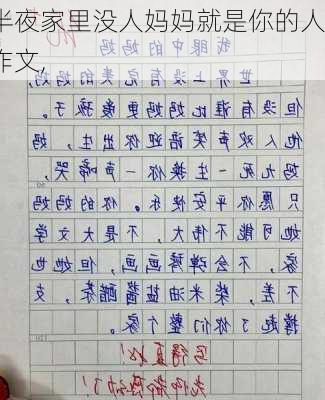 半夜家里没人妈妈就是你的人
作文,
优
我眼中的妈妈
世界上没有完美的妈妈，
但没有谁比妈妈更爱孩子。
他人欢声笑语迎你出生，妈
妈九死一生换你一声啼哭，
只愿你平安快乐。你的妈妈
她可能不伟大，不是大文学
家，不会弹琴画画，但她也
不差，柴米油盐酱醋茶，支
撑起了你们整个家。
写得真好！
老师都感动了！